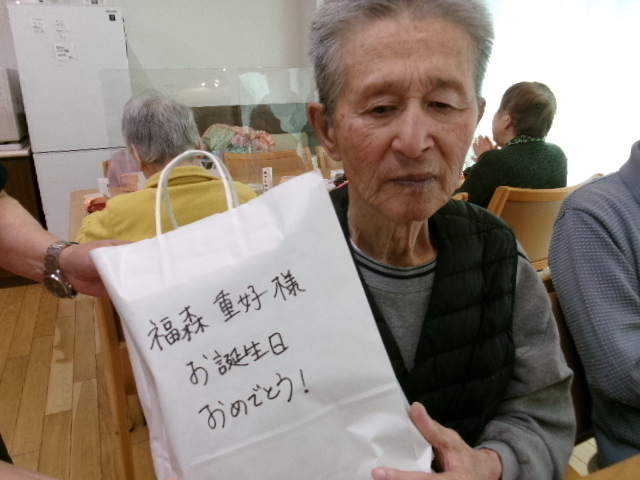 福森 重好 様
お誕生日
おめでとう!